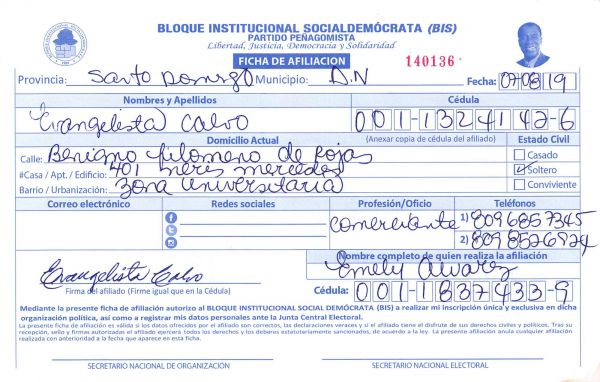 BLOQUE INSTITUCIONAL SOCIALDEMÓCRATA (BIS)
PARTIDO PEÑAGOMISTA
Libertad, Justicia, Democracia y Solidaridad
FICHA DE AFILIACION 140136
Provincia: Santo Domingo Municipio: D.N Fecha: 07/08/19
Nombres y Apellidos Cédula
Evangelista Calvo 001-1324142-6
Domicilio Actual (Anexar copia de cédula del afiliado) Estado Civil
Calle: Benigno filomeno de Rojas Casado
#Casa / Apt. / Edificio: 401 Soltero
Barrio / Urbanización: Zona Universitaria Conviviente
Correo electrónico Redes sociales Profesión/Oficio Teléfonos
comerciante 1) 809 6857345
2) 809 8526924
Nombre completo de quien realiza la afiliación
Evangelista Calvo Emely Alvarez
Firma del afiliado (Firme igual que en la Cédula) Cédula: 001-1837433-9
Mediante la presente ficha de afiliación autorizo al BLOQUE INSTITUCIONAL SOCIAL DEMÓCRATA (BIS) a realizar mi inscripción única y exclusiva en dicha
organización política, así como a registrar mis datos personales ante la Junta Central Electoral.
La presente ficha de afiliación es válida si los datos ofrecidos por el afiliado son correctos, las declaraciones veraces y si el afiliado tiene el disfrute de sus derechos civiles y políticos. Tras su
recepción, sello y firmas autorizadas el afiliado ejercerá todos los derechos y los deberes estatutariamente sancionados, de acuerdo a la ley. La presente afiliación anula cualquier afiliación
realizada con anterioridad a la fecha que aparece en esta ficha.
SECRETARIO NACIONAL DE ORGANIZACIÓN SECRETARIO NACIONAL ELECTORAL